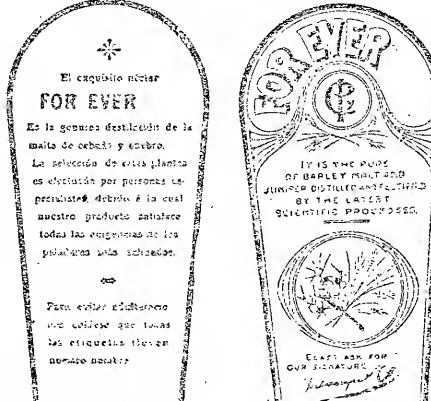 El exquisito néctar
FOR EVER
Es la genuina destilación de la
malta de cebada y enebro.
La selección de estas plantas
es efectuada por personas es-
pecialistas, debido á la cual
nuestro producto satisface
todas las exigencias de los
paladares más
Para evitar
que todas
las etiquetas lleven
nuestro nombre
FOR EVER
IT IS THE PURE
OF BARLEY MALT AND
JUNIPER DISTILLED AND RECTIFIED
BY THE LATEST
SCIENTIFIC PROCESSES.
ASK FOR
OUR SIGNATURE